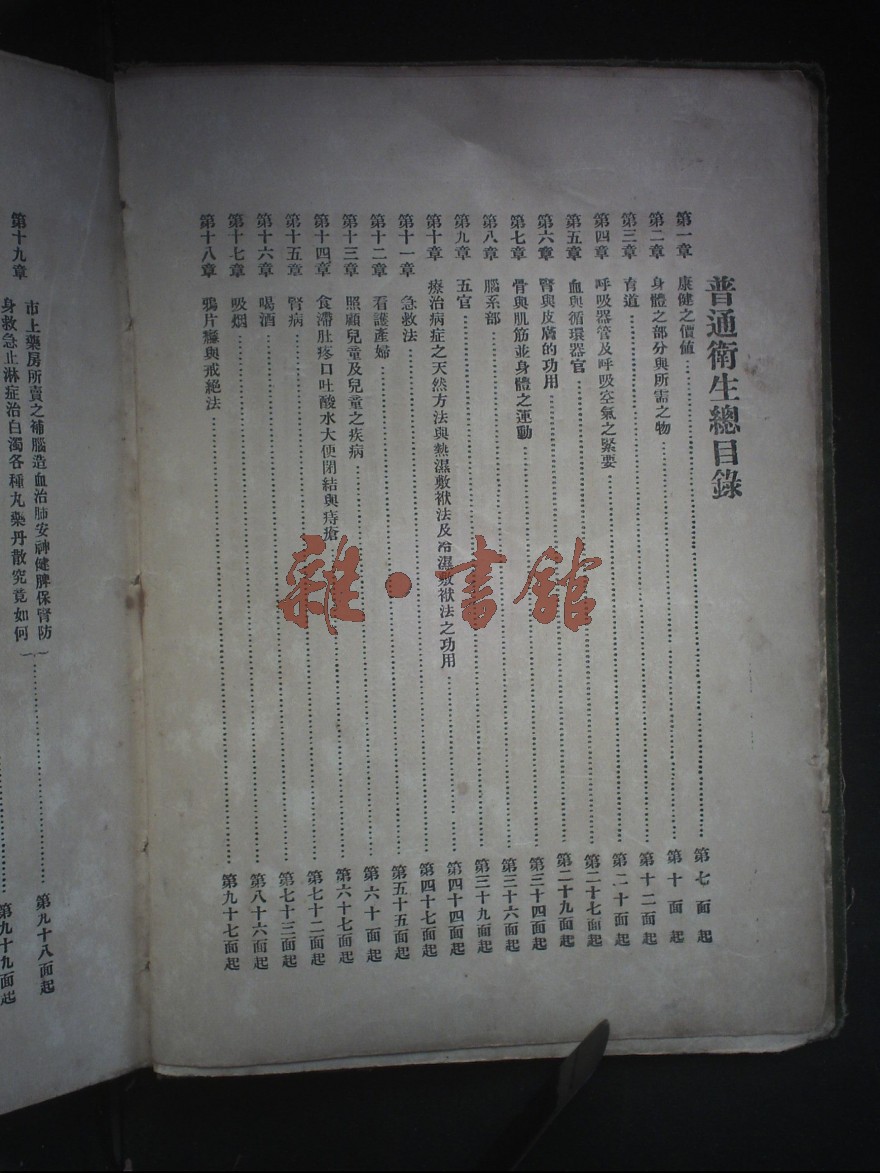 普通衛生總目錄
第一章 康健之價値……第七面起
第二章 身體之部分與所需之物……第十面起
第三章 育道……第十二面起
第四章 呼吸器管及呼吸空氣之緊要……第二十面起
第五章 血與循環器官……第二十七面起
第六章 腎與皮膚的功用……第二十九面起
第七章 骨與肌筋並身體之運動……第三十四面起
第八章 腦系部……第三十六面起
第九章 五官……第三十九面起
第十章 療治病症之天然方法與熱濕敷袱法及冷濕敷袱法之功用……第四十四面起
第十一章 急救法……第四十七面起
第十二章 看護產婦……第五十五面起
第十三章 照顧兒童及兒童之疾病……第六十面起
第十四章 食滯肚疼口吐酸水大便閉結與痔瘡……第六十七面起
第十五章 腎病……第七十二面起
第十六章 喝酒……第七十三面起
第十七章 吸烟……第八十六面起
第十八章 鴉片癮與戒絕法……第九十七面起
第十九章 市上藥房所賣之補腦造血治肺安神健脾保腎防
身救急止淋症治白濁各種丸藥丹散究竟如何……第九十八面起
……第九十九面起
雜·書館